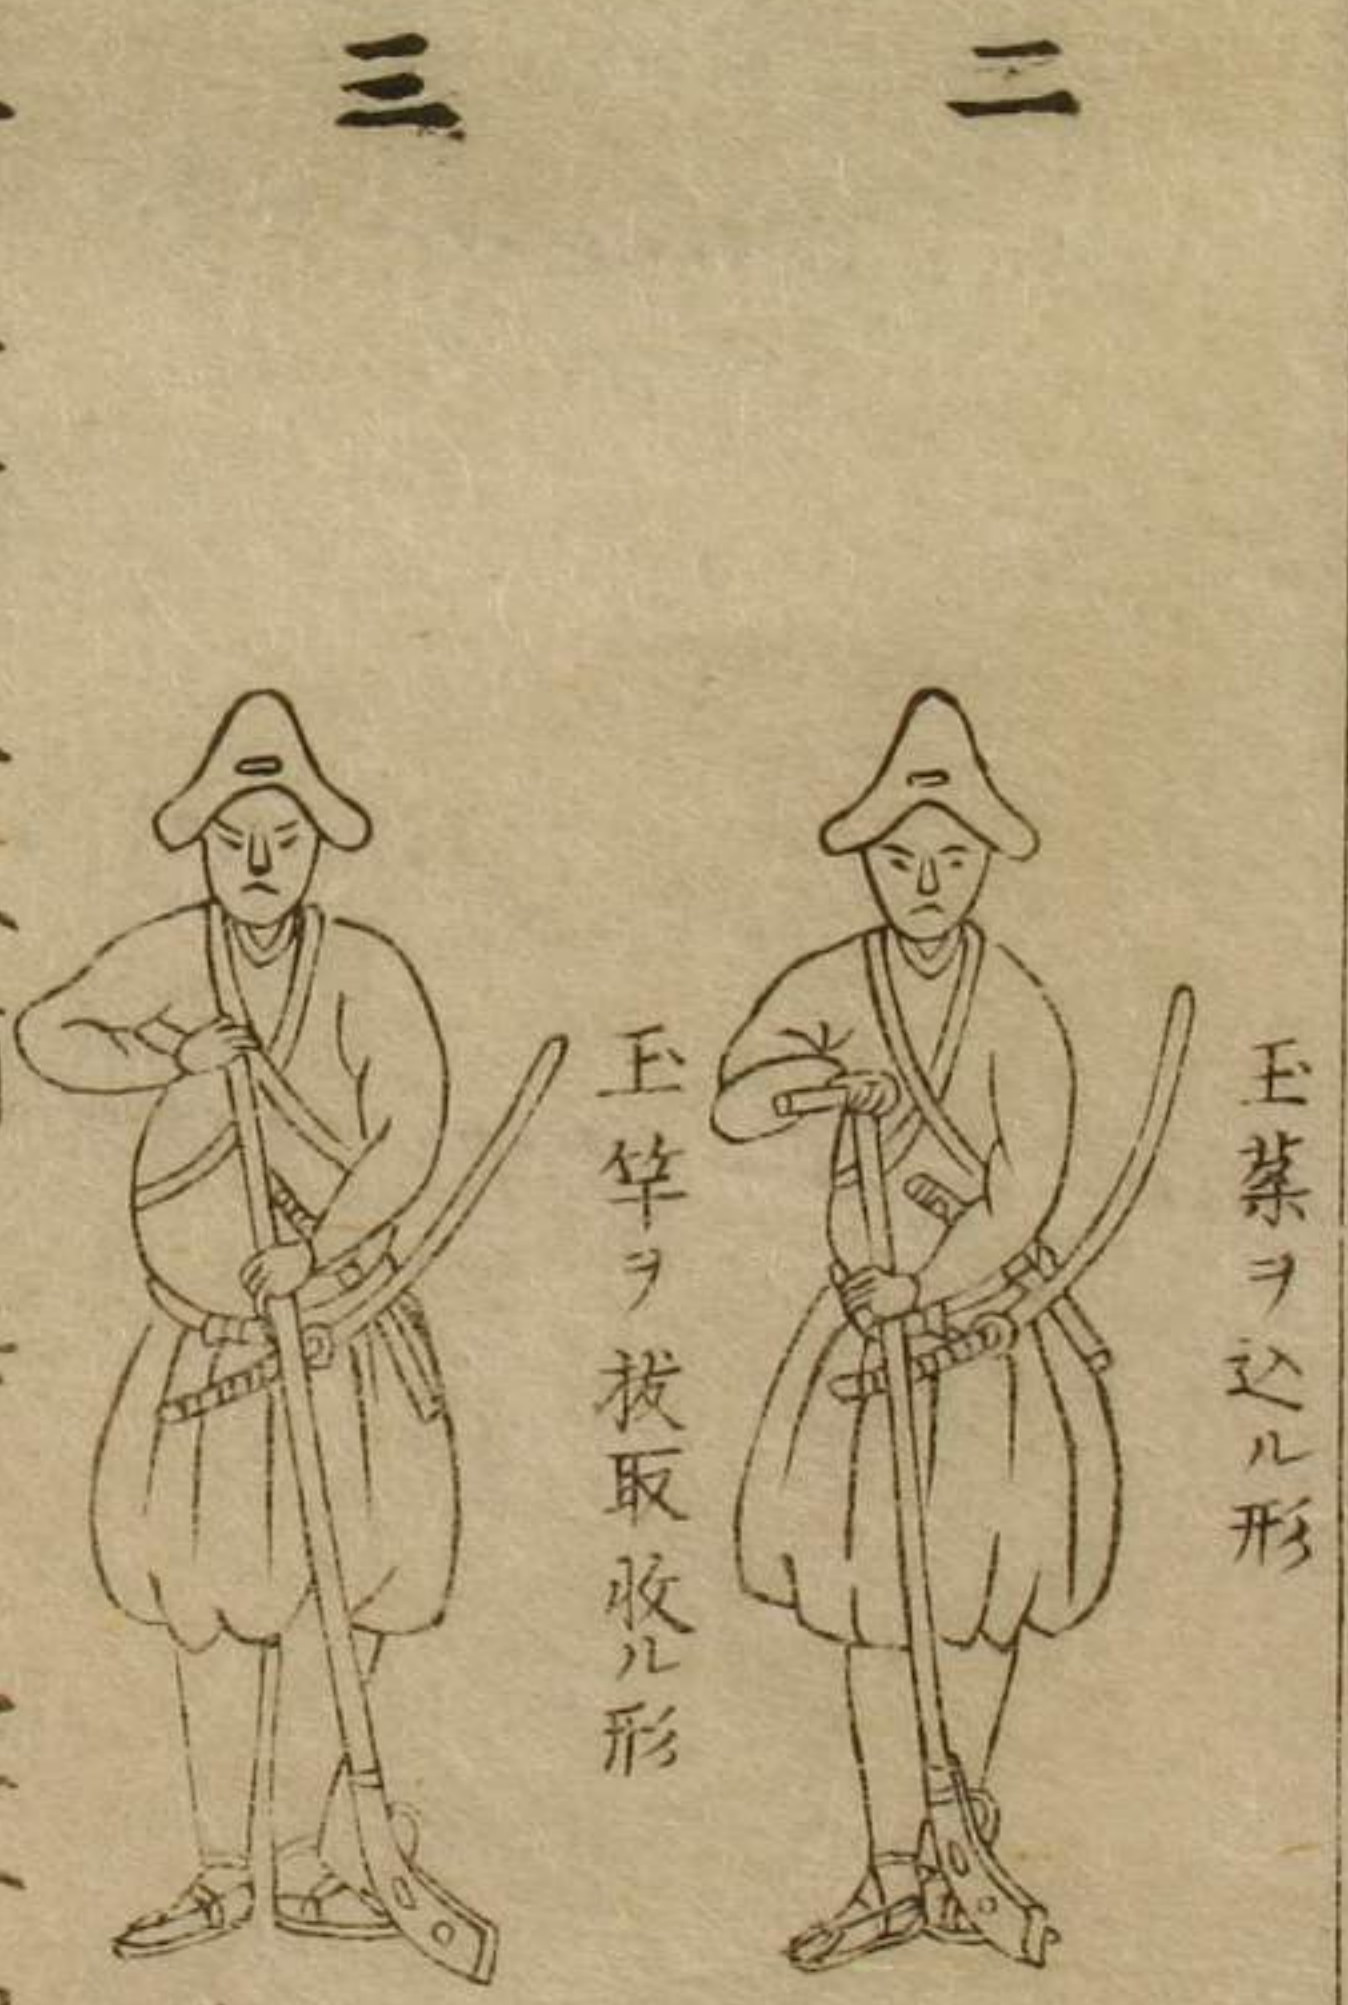 二
玉薬ヲ込ル形
三
玉竿ヲ抜取收ル形